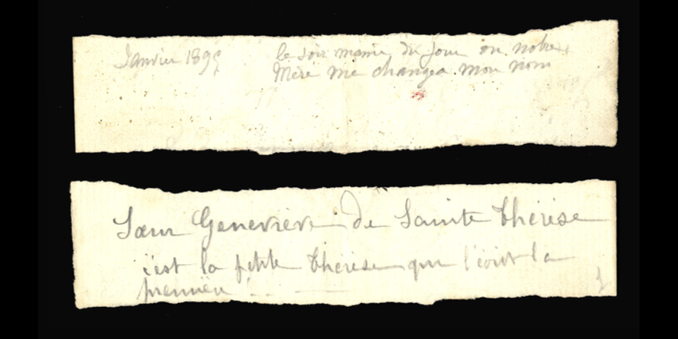 Janvier 1895 le soir même du jour où notre
Mère me changea mon nom
Sœur Geneviève de Sainte Thérèse
c'est la petite Thérèse qui l'écrit la
première !